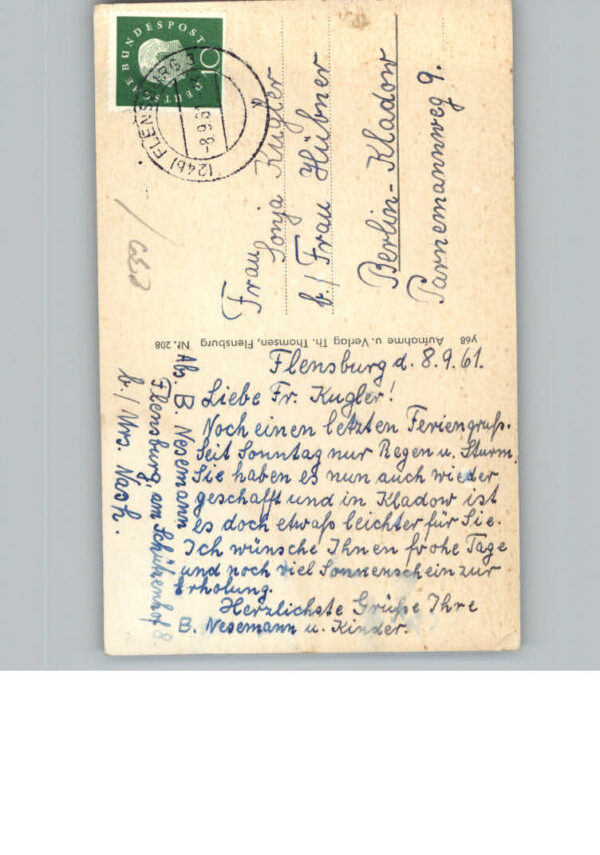 DEUTSCHE BUNDESPOST
10
(24b) FLENSBURG
-8.9.61
Frau
Sonja Kugler
b./ Frau Hübner
Berlin-Kladow
Parnemannweg 9.
y68 Aufnahme u. Verlag Th. Thomsen, Flensburg Nr. 208
Flensburg d. 8.9.61.
Liebe Fr. Kugler!
Noch einen letzten Feriengruß.
Seit Sonntag nur Regen u. Sturm.
Sie haben es nun auch wieder
geschafft und in Kladow ist
es doch etwaß leichter für Sie.
Ich wünsche Ihnen frohe Tage
und noch viel Sonnenschein zur
Erholung.
Herzlichste Grüße Ihre
B. Nesemann u. Kinder.
Abs. B. Nesemann
Flensburg, am Schützenhof 8.
b./ Mrs. Nash.